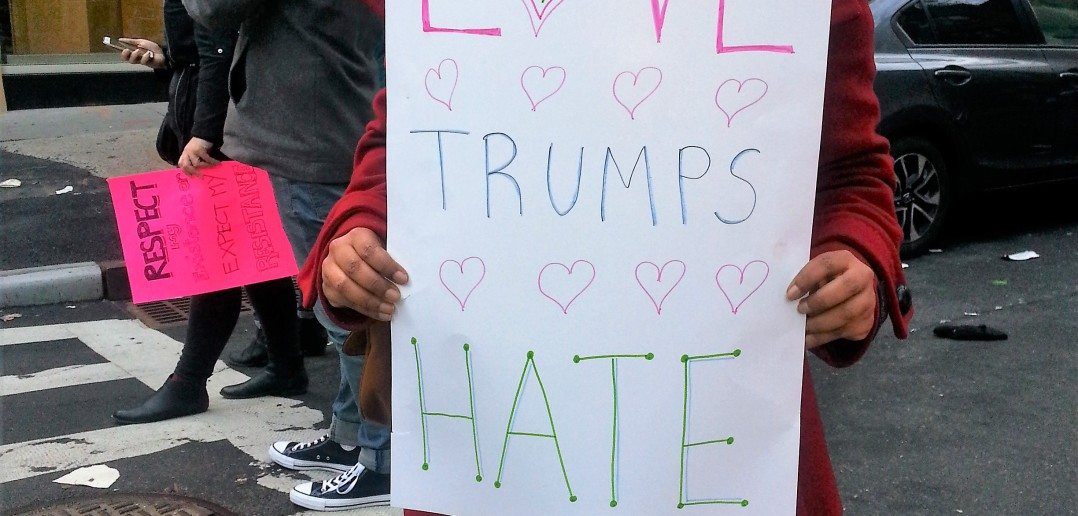 LOVE
TRUMPS
HATE
RESPECT
my
Existence or
EXPECT MY
RESISTANCE